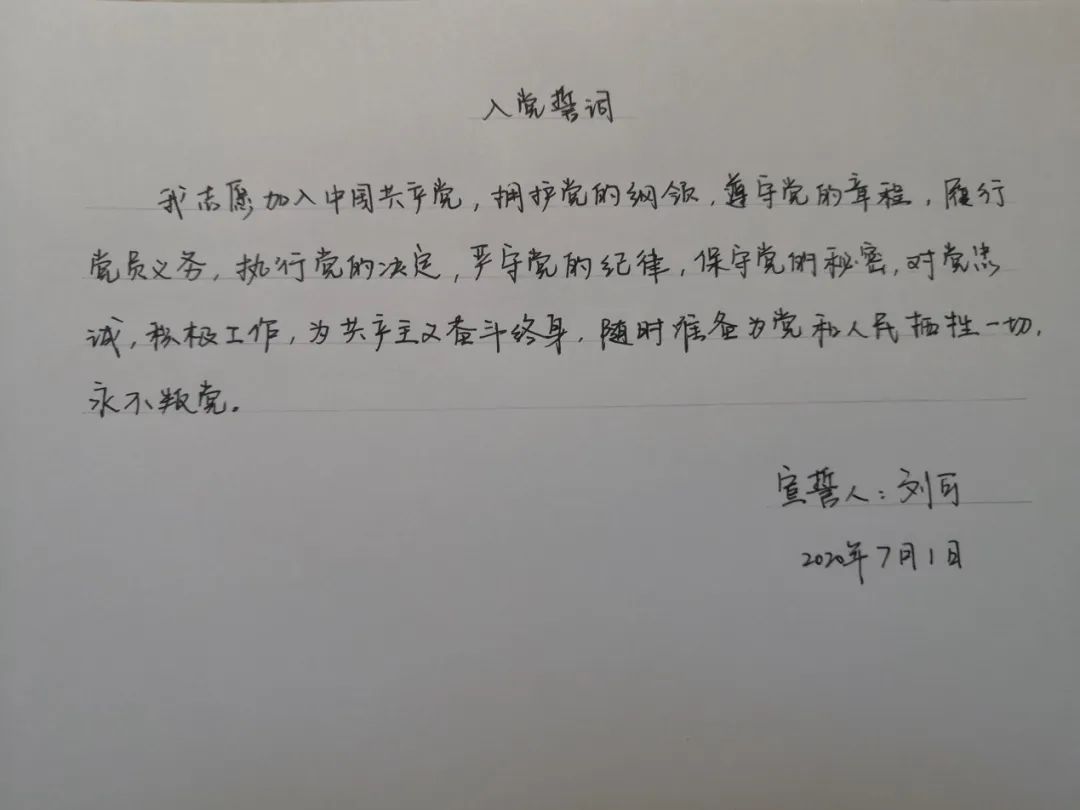 入党誓词
我志愿加入中国共产党，拥护党的纲领，遵守党的章程，履行
党员义务，执行党的决定，严守党的纪律，保守党的秘密，对党忠
诚，积极工作，为共产主义奋斗终身，随时准备为党和人民牺牲一切，
永不叛党。
宣誓人：刘可
2020年7月1日